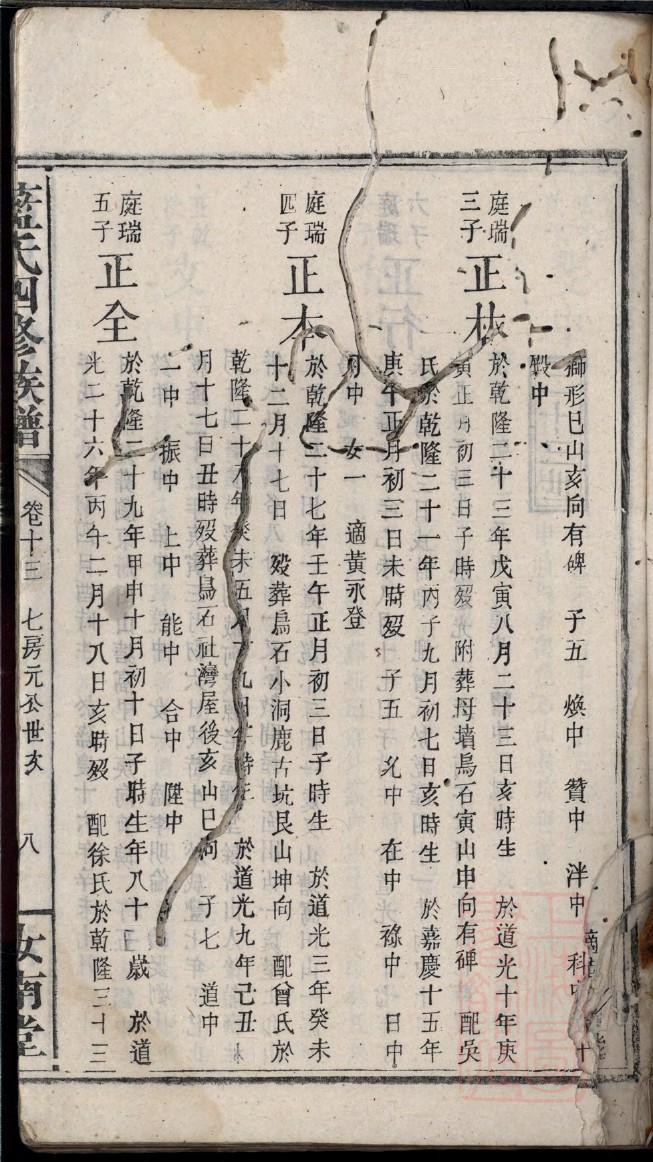 獅形巳山亥向有碑 子五 煥中 贊中 泮中 科中
毀中
庭瑞
三子 正林
於乾隆二十三年戊寅八月二十三日亥時生 於道光十年庚
寅正月初三日子時歿 附葬母墳烏石寅山申向有碑 配吳
氏於乾隆二十一年丙子九月初七日亥時生 於嘉慶十五年
庚午正月初三日未時歿 子五 允中 在中 祿中 日中
中 女一 適黃永登
庭瑞
四子 正本
於乾隆二十七年壬午正月初三日子時生 於道光三年癸未
十二月十七日 歿葬烏石小洞鹿古坑艮山坤向 配曾氏於
乾隆二十八年癸未五月十九日 時生 於道光九年己丑
月十七日丑時歿葬烏石社灣屋後亥山巳向 子七 道中
二中 振中 上中 能中 合中 陞中
庭瑞
五子 正全
於乾隆二十九年甲申十月初十日子時生年八十 歲 於道
光二十六年丙午二月十八日亥時歿 配徐氏於乾隆三十三
藍氏四修族譜 卷十三 七房元公世次 八 汝南堂